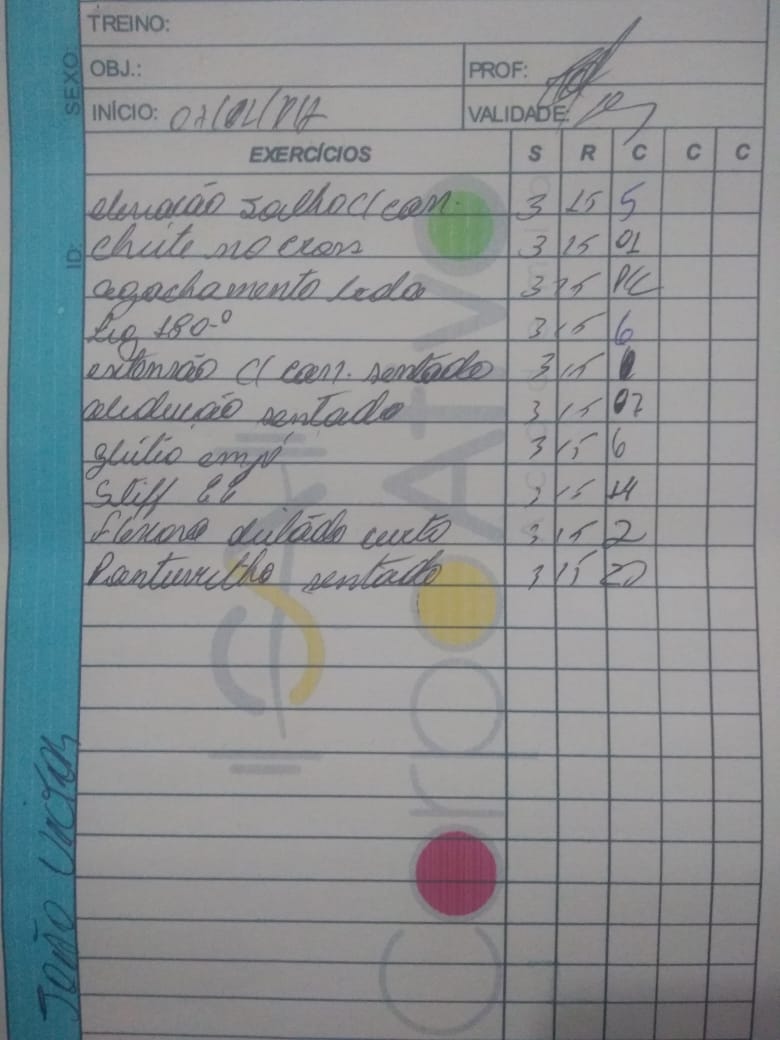 TREINO:
SEXO
OBJ.: PROF:
INÍCIO: VALIDADE:
EXERCÍCIOS S R C C C
ID:
elevação joelho c/ can. 3 15 5
chute no cross 3 15 01
agachamento 3 15
Leg 180º 3 15 6
extensão c/ can. sentado 3 15
abdução sentado 3 15 07
glútio em pé 3 15 6
Stiff 3 15 14
Flexora curto 3 15 2
Panturrilha sentado 3 15 20
João Victor
CorpoAtivo